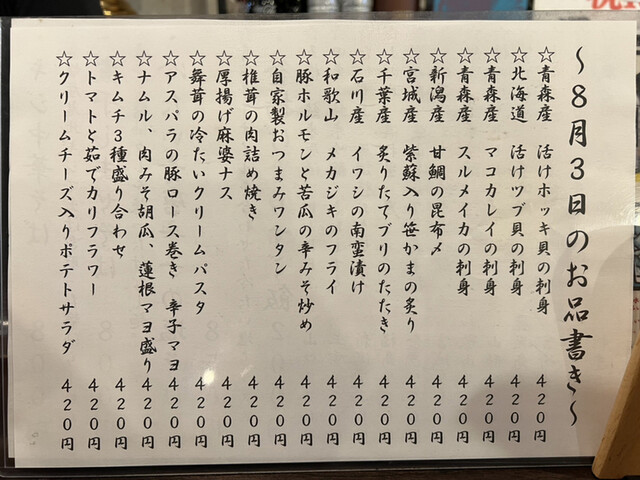 〜8月3日のお品書き〜
☆青森産 活けホッキ貝の刺身 420円
☆北海道 活けツブ貝の刺身 420円
☆青森産 マコカレイの刺身 420円
☆青森産 スルメイカの刺身 420円
☆新潟産 甘鯛の昆布〆 420円
☆宮城産 紫蘇入り笹かまの炙り 420円
☆千葉産 炙りたてブリのたたき 420円
☆石川産 イワシの南蛮漬け 420円
☆和歌山 メカジキのフライ 420円
☆豚ホルモンと苦瓜の辛みそ炒め 420円
☆自家製おつまみワンタン 420円
☆椎茸の肉詰め焼き 420円
☆厚揚げ麻婆ナス 420円
☆舞茸の冷たいクリームパスタ 420円
☆アスパラの豚ロース巻き 辛子マヨ 420円
☆ナムル、肉みそ胡瓜、蓮根マヨ盛り 420円
☆キムチ3種盛り合わせ 420円
☆トマトと茹でカリフラワー 420円
☆クリームチーズ入りポテトサラダ 420円